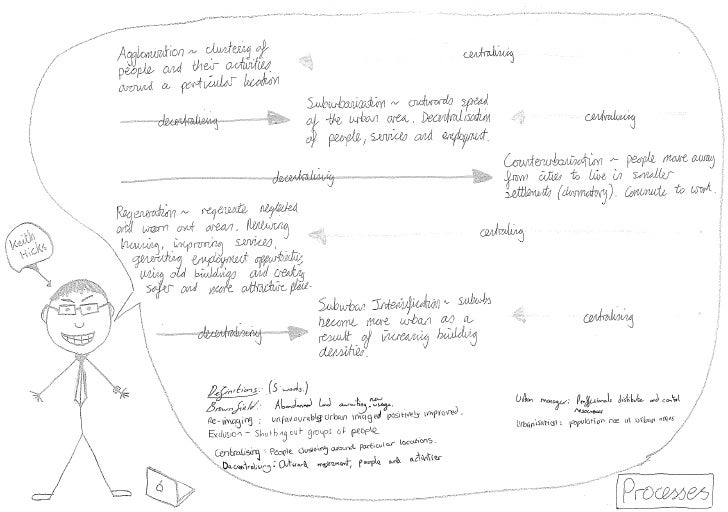 Agglomeration ~ clustering of
people and their activities
around a particular location
centralising
decentralising
Suburbanisation ~ outwards spread
of the urban area. Decentralisation
of people, services and employment.
centralising
decentralising
Counterurbanisation ~ people move away
from cities to live in smaller
settlements (dormatory). Commute to work.
Regeneration ~ regenerate neglected
and worn out areas. Renewing
housing, improving services,
generating employment opportunities,
using old buildings and creating
safer and more attractive place.
centraling
Keith
Hicks
decentralising
Suburban Intensification ~ suburbs
become more urban as a
result of increasing building
densities.
centralising
Definitions: (5 words.)
Brownfield: Abandoned land awaiting new usage.
Re-imaging: unfavourable urban images positively improved.
Exclusion - Shutting out groups of people
Centralising: People clustering around particular locations.
Decentralising: Outward movement, people and activities
Urban manager: Professionals distribute and control
resources
Urbanisation: population rise in urban areas
Processes